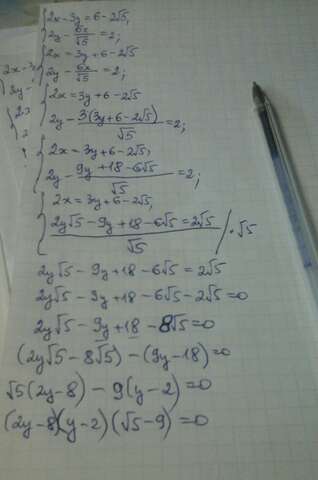 2x-3y=6-2√5,
2y-6x/√5=2;
2x=3y+6-2√5
2y-6x/√5=2;
2x=3y+6-2√5
2y-3(3y+6-2√5)/√5=2;
2x=3y+6-2√5,
2y-9y+18-6√5/√5=2;
2x=3y+6-2√5,
2y√5-9y+18-6√5=2√5/√5 /·√5
2y√5-9y+18-6√5=2√5
2y√5-9y+18-6√5-2√5=0
2y√5-9y+18-8√5=0
(2y√5-8√5)-(9y-18)=0
√5(2y-8)-9(y-2)=0
(2y-8)(y-2)(√5-9)=0